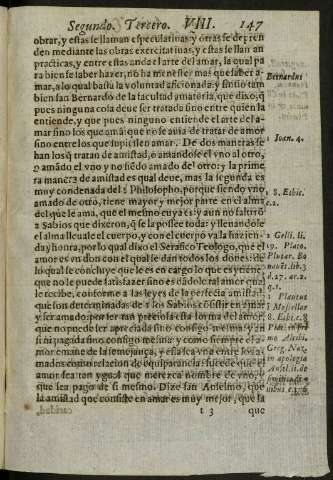 Segundo. Tercero. VIII. 147
obrar, y estas se llaman especulatiuas: y otras se depren
den mediante las obras exercitatiuas, y estas se llaman
practicas, y entre estas anda el arte del amar, la qual pa
ra bien se saber hazer, no ha menester mas que saber a-
mar, a lo qual basta la voluntad aficionada: y sintio tam
bien san Bernardo de la facultad amatoria, que dixo, q̃
pues ninguna cosa deue ser tratada sino entre quien la
entiende, y que pues ninguno entiende el arte del a-
mar sino los que amã: que no se auia de tratar de amor
sino entre los que supiessen amar. De dos maneras se
han los q̃ tratan de amistad, o amandose el vno al otro,
o amãdo el vno y no siẽdo amado del otro: y la prime
ra manera de amistad es qual deue, mas la segunda es
muy condenada del Philosopho, porque siendo vno
amado de otro, tiene mayor y mejor parte en el alma
del que le ama, que el mesmo cuya es: y aun no faltarõ
Sabios que dixeron, q̃ se la possee toda: y llenandole
el alma lleuale el cuerpo, y con el cuerpo va la hazien-
da y honra, por lo qual dixo el Serafico Teologo, que el
amor es vn don con el qual se dan todos los dones: de
lo qual se concluye que le es en cargo lo que es y tiene,
que no le puede satisfazer sino es dãdole tal amor qual
le recibe, conforme a las leyes de la perfecta amistad:
que son determinadas de los Sabios cõsistir en amar
y ser amado: por ser tan preciosa esta forma del amor,
que no puede ser apreciada sino consigo mesma, y an
si ni pagada sino consigo mesma: y como siempre el a-
mor emane de la semejança, y esta sea vna entre los a-
mados como relacion de equiparancia: sucede que el
amor sea tan ygual que merezca nombre de vno, y
que sea pago de si mesmo. Dize san Anselmo, que
la amistad que consiste en amar es muy mejor, que la
t 3 que
Bernardus
Ioan. 4.
8. Ethic.
c. 2.
Gelli. li.
19. Plato.
Plutar.
9. 1.
Plautus
8. Ethi. c. 8
Greg. Naz.
in apologia
Ansel. li. de